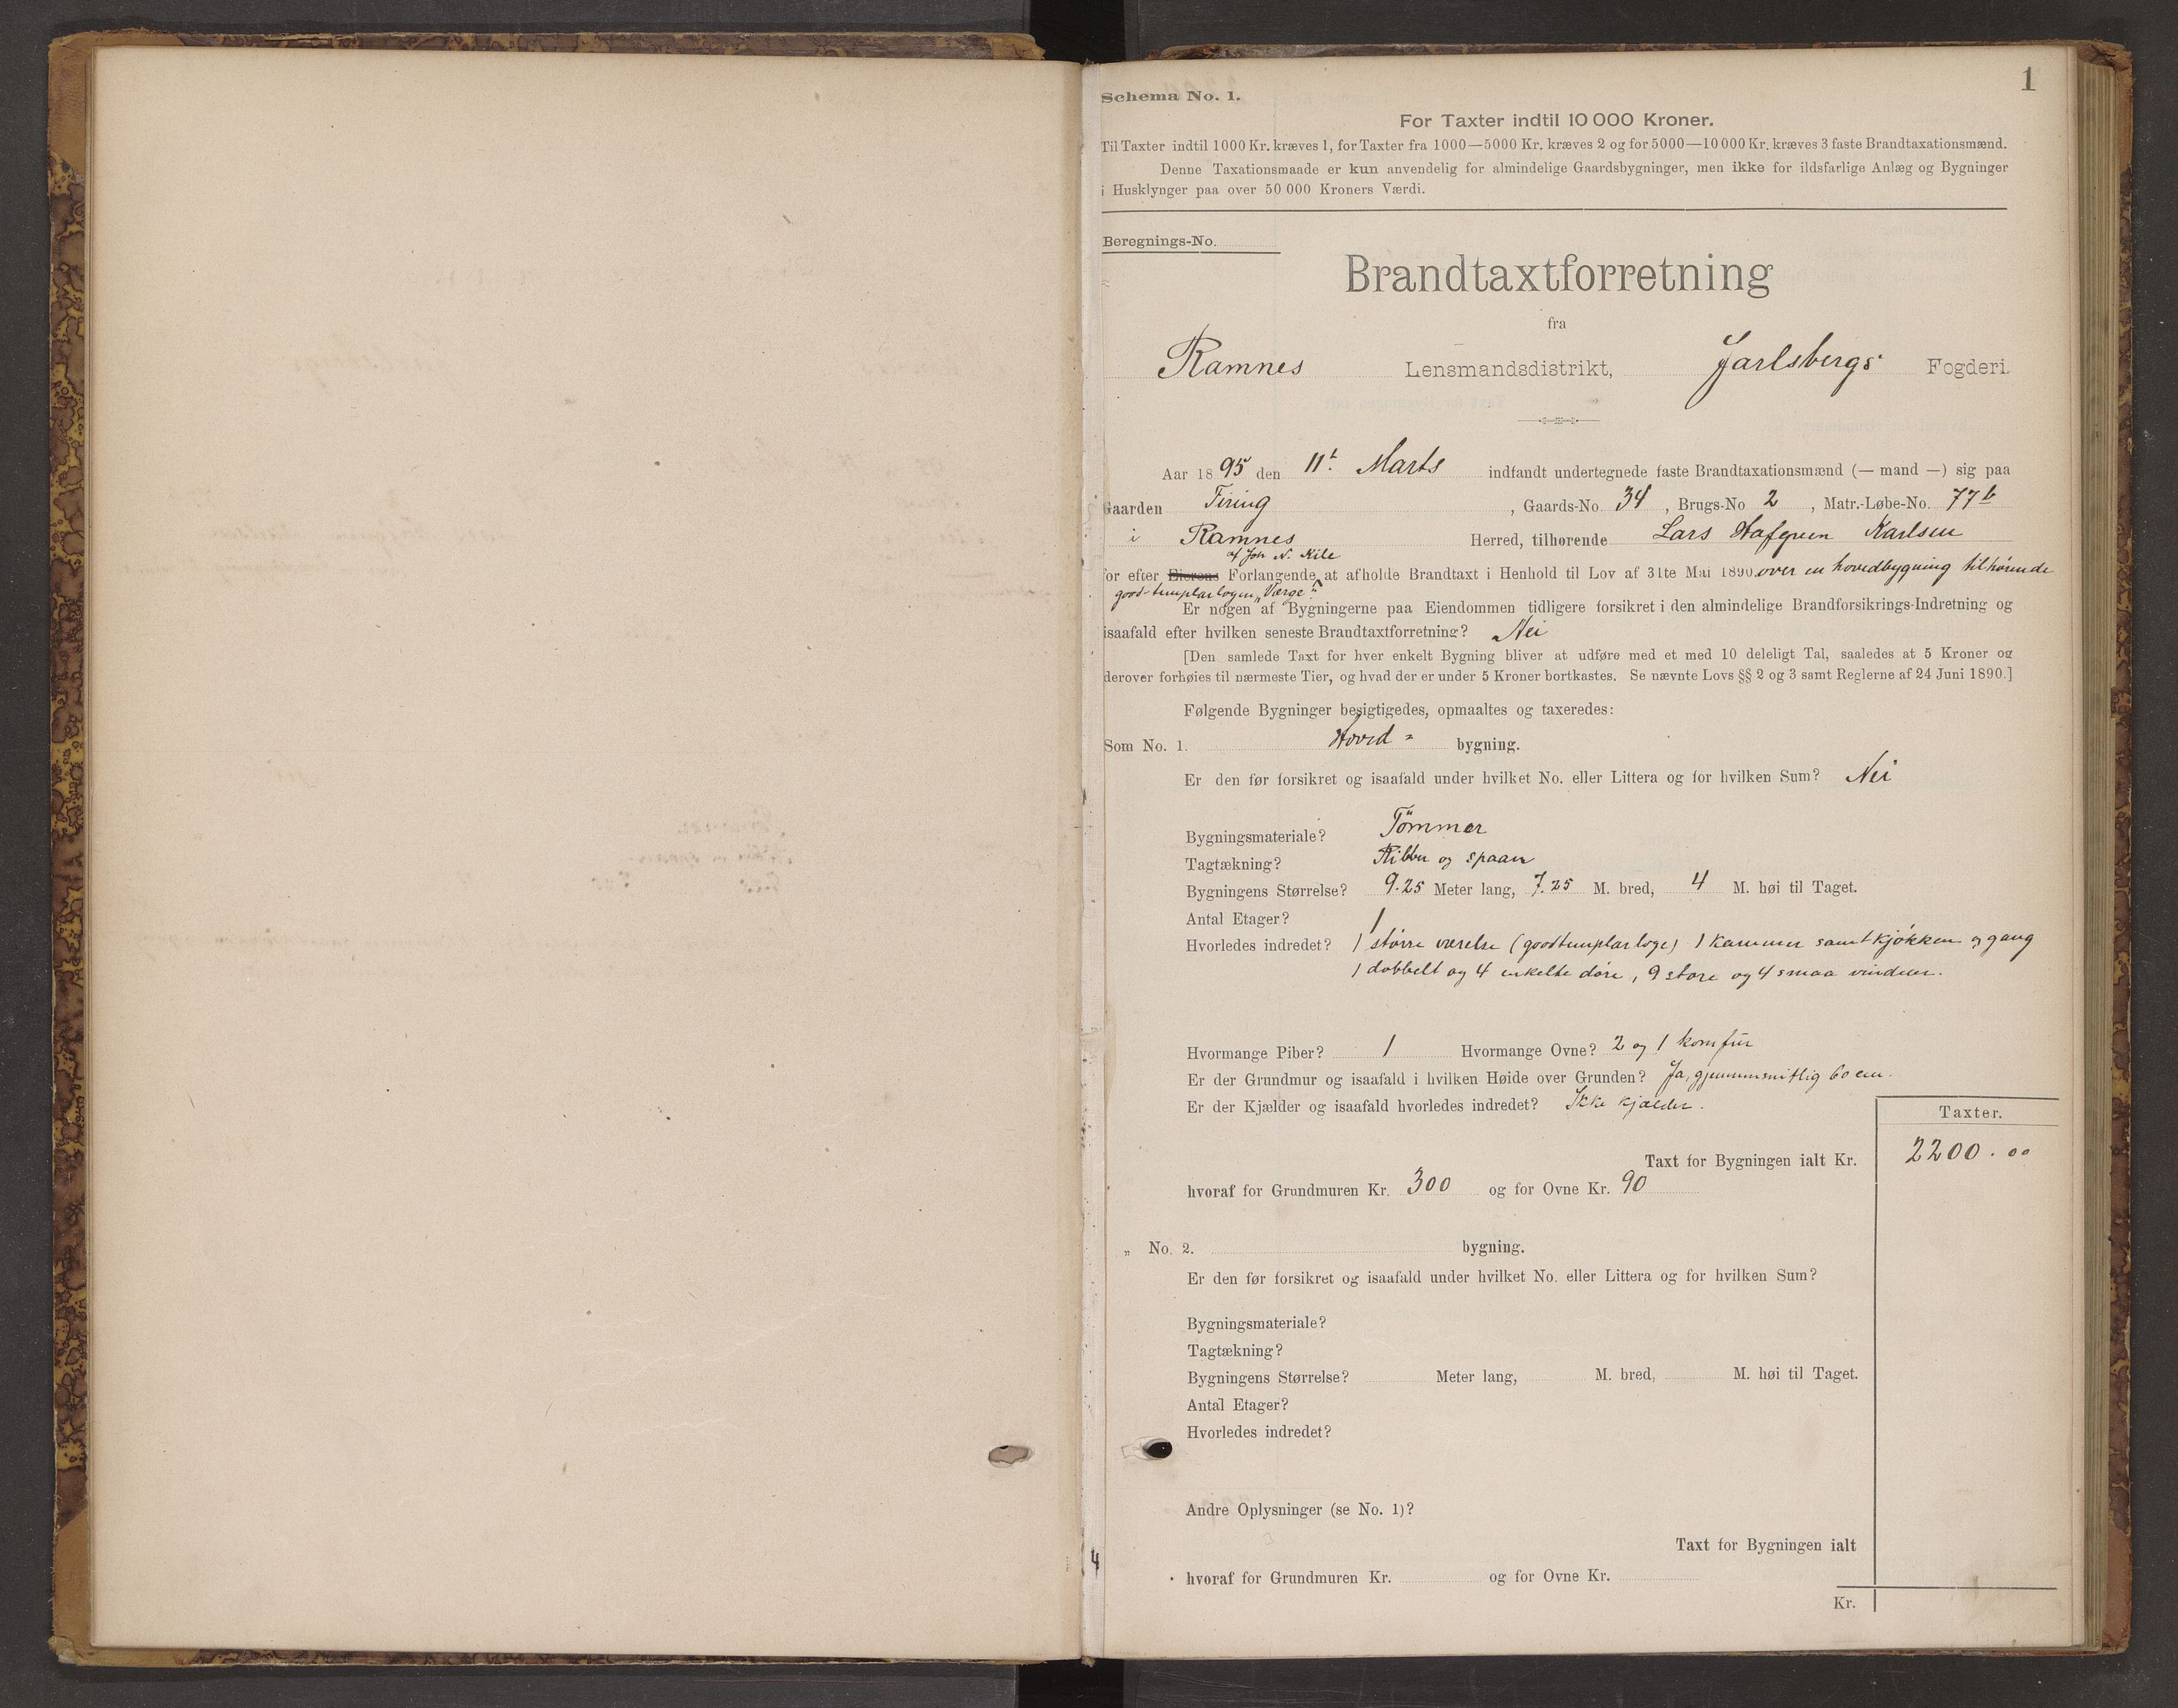 1
Schema No. 1.
For Taxter indtil 10 000 Kroner.
Til Taxter indtil 1000 Kr. kræves 1, for Taxter fra 1000—5000 Kr. kræves 2 og for 5000—10 000 Kr. kræves 3 faste Brandtaxationsmænd.
Denne Taxationsmaade er kun anvendelig for almindelige Gaardsbygninger, men ikke for ildsfarlige Anlæg og Bygninger
i Husklynger paa over 50 000 Kroners Værdi.
Beregnings-No.
Brandtaxtforretning
fra
Ramnes Lensmandsdistrikt, Jarlsbergs Fogderi.
Aar 1895 den 11t Marts indfandt undertegnede faste Brandtaxationsmænd (— mand —) sig paa
Gaarden Firing, Gaards-No. 34, Brugs-No 2, Matr.-Løbe-No. 77b
i Ramnes Herred, tilhørende Lars Hafgreen Karlsen
af Joh N. Kile
for efter Eierens Forlangende at afholde Brandtaxt i Henhold til Lov af 31te Mai 1890 over en hovedbygning tilhørende
good-templarlogen „Værge“
Er nogen af Bygningerne paa Eiendommen tidligere forsikret i den almindelige Brandforsikrings-Indretning og
isaafald efter hvilken seneste Brandtaxtforretning? Nei
[Den samlede Taxt for hver enkelt Bygning bliver at udføre med et med 10 deleligt Tal, saaledes at 5 Kroner og
derover forhøies til nærmeste Tier, og hvad der er under 5 Kroner bortkastes. Se nævnte Lovs §§ 2 og 3 samt Reglerne af 24 Juni 1890.]
Følgende Bygninger besigtigedes, opmaaltes og taxeredes:
Som No. 1. Hoved = bygning.
Er den før forsikret og isaafald under hvilket No. eller Littera og for hvilken Sum? Nei
Bygningsmateriale? Tömmer
Tagtækning? Ribber og spaan
Bygningens Størrelse? 9.25 Meter lang, 7.25 M. bred, 4 M. høi til Taget.
Antal Etager? 1
Hvorledes indredet? 1 større værelse (goodtemplarloge) 1 kammer samt kjøkken og gang
1 dobbelt og 4 enkelte døre, 9 store og 4 smaa vinduer.
Hvormange Piber? 1 Hvormange Ovne? 2 og 1 komfür
Er der Grundmur og isaafald i hvilken Høide over Grunden? Ja, gjennemsnitlig 60 cm.
Er der Kjælder og isaafald hvorledes indredet? Ikke kjælder.
Taxter.
Taxt for Bygningen ialt Kr. 2200.00
hvoraf for Grundmuren Kr. 300 og for Ovne Kr. 90
„ No. 2. bygning.
Er den før forsikret og isaafald under hvilket No. eller Littera og for hvilken Sum?
Bygningsmateriale?
Tagtækning?
Bygningens Størrelse? Meter lang, M. bred, M. høi til Taget.
Antal Etager?
Hvorledes indredet?
Andre Oplysninger (se No. 1)?
Taxt for Bygningen ialt
4
hvoraf for Grundmuren Kr. og for Ovne Kr.
Kr.